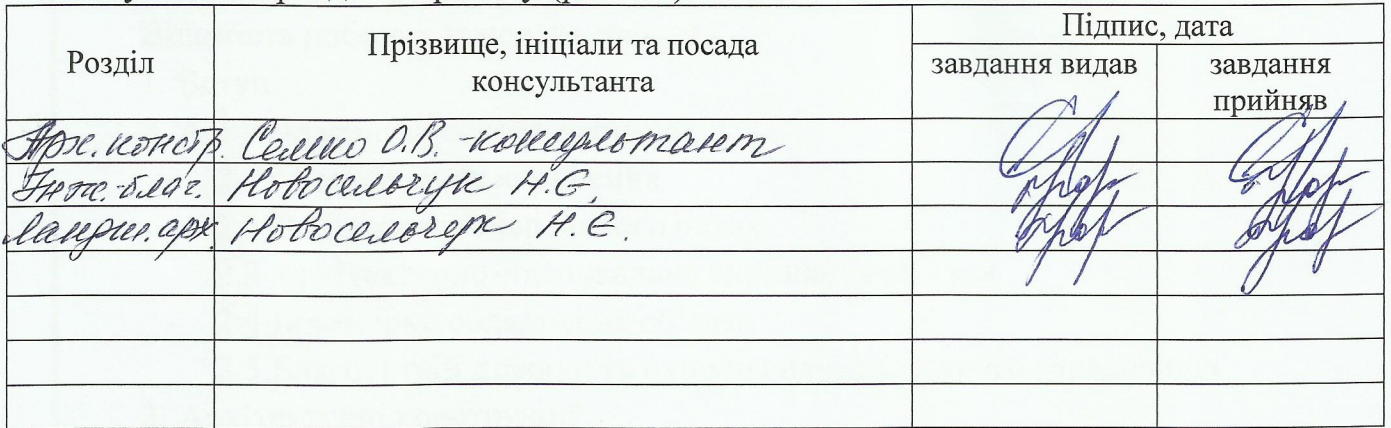 Підпис, дата
Розділ
Прізвище, ініціали та посада
консультанта
завдання видав
завдання
прийняв
Арх. констр. Семко О.В. - консультант
Інж.-благ. Новосельчук Н.Є.
Ландш. арх. Новосельчук Н.Є.